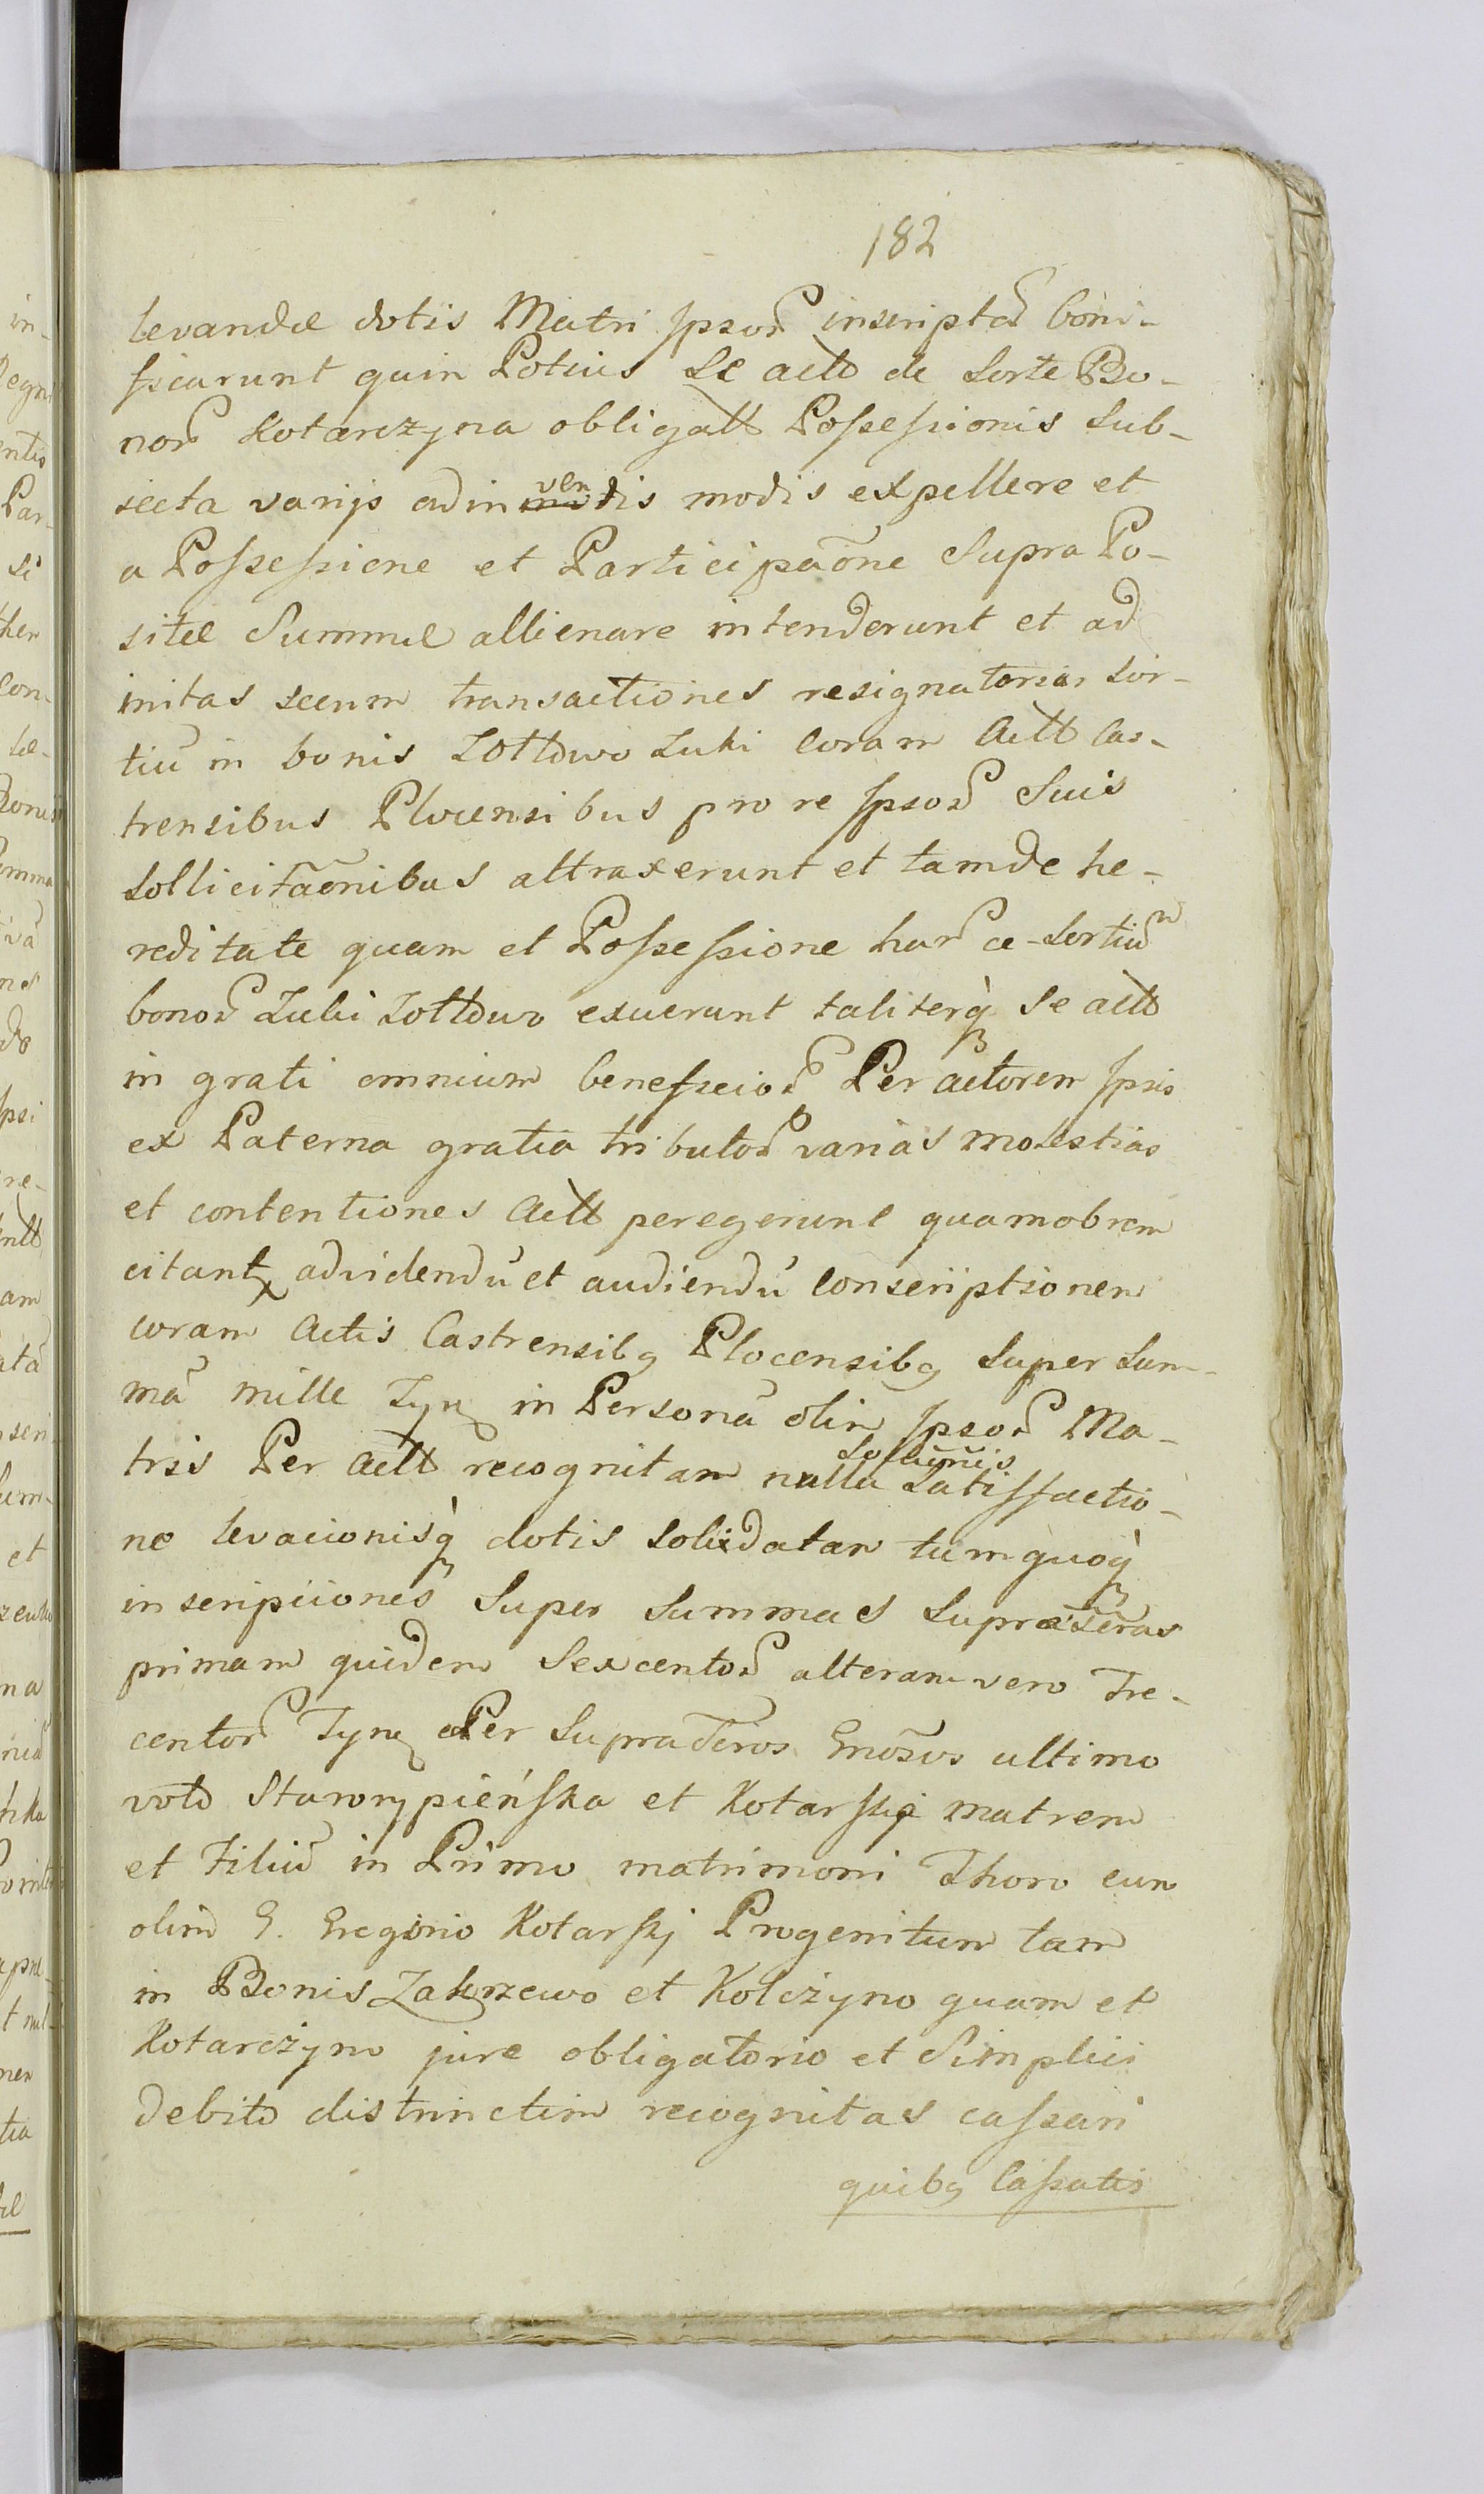 182
levandæ dotis Matri Ipsor̃ inscriptã boni-
ficarunt quin Potius Se actt̃ de Sorte Bo-
nor̃ Kotarczyna obligatt̃ Possessionis Sub-
iecta varijs adinventis modis expellere et
a Possessione et Participaõne Supra Po-
sitæ Summæ allienare intenderunt et ad
initas secum transactiones resignatorias Sor-
tiũ in bonis Zottowo Luki Coram Actt̃ Cas-
trensibus Plocensibus pro re Ipsor̃ Suis
Sollicitaõnibus attraxerunt et tam de he-
reditate quam et Possessione harr̃ce Sortium
bonor̃ Luki Zottowo exuerunt taliterq̃ Se actt̃
in grati omnium beneficior̃ Per actorem Ipsis
ex Paterna gratia tributor̃ varias molestias
et contentiones Actt̃ peregerunt quamobrem
citantꝛ advidendũ et audiendũ Conscriptionem
coram Actis Castrensibꝫ Plocensibꝫ Super Sum-
mã mille Tynꝫ in Personã olim Ipsor̃ Ma-
tris Per Actt̃ recognitam nulla Satisfactio-
ne levacionisq̃ dotis Solidatam tum quoq̃
inscripciones Super Summas Supraščras
primam quidem Sexcentor̃ alteram vero Tre-
centor̃ Tynꝫ Per Supradčtos Gnõsos ultimo
voto Starorypieńska et Kotarskj matrem
et Filiũ in Primo matrimoni Thoro cum
olim G. Gregorio Kotarskj Progenitum tam
in Bonis Zakrzewo et Kolczyno quam et
Kotarczyno jure obligatorio et Simplici
debito distinctim recognitas cassari
quibꝫ Cassatis